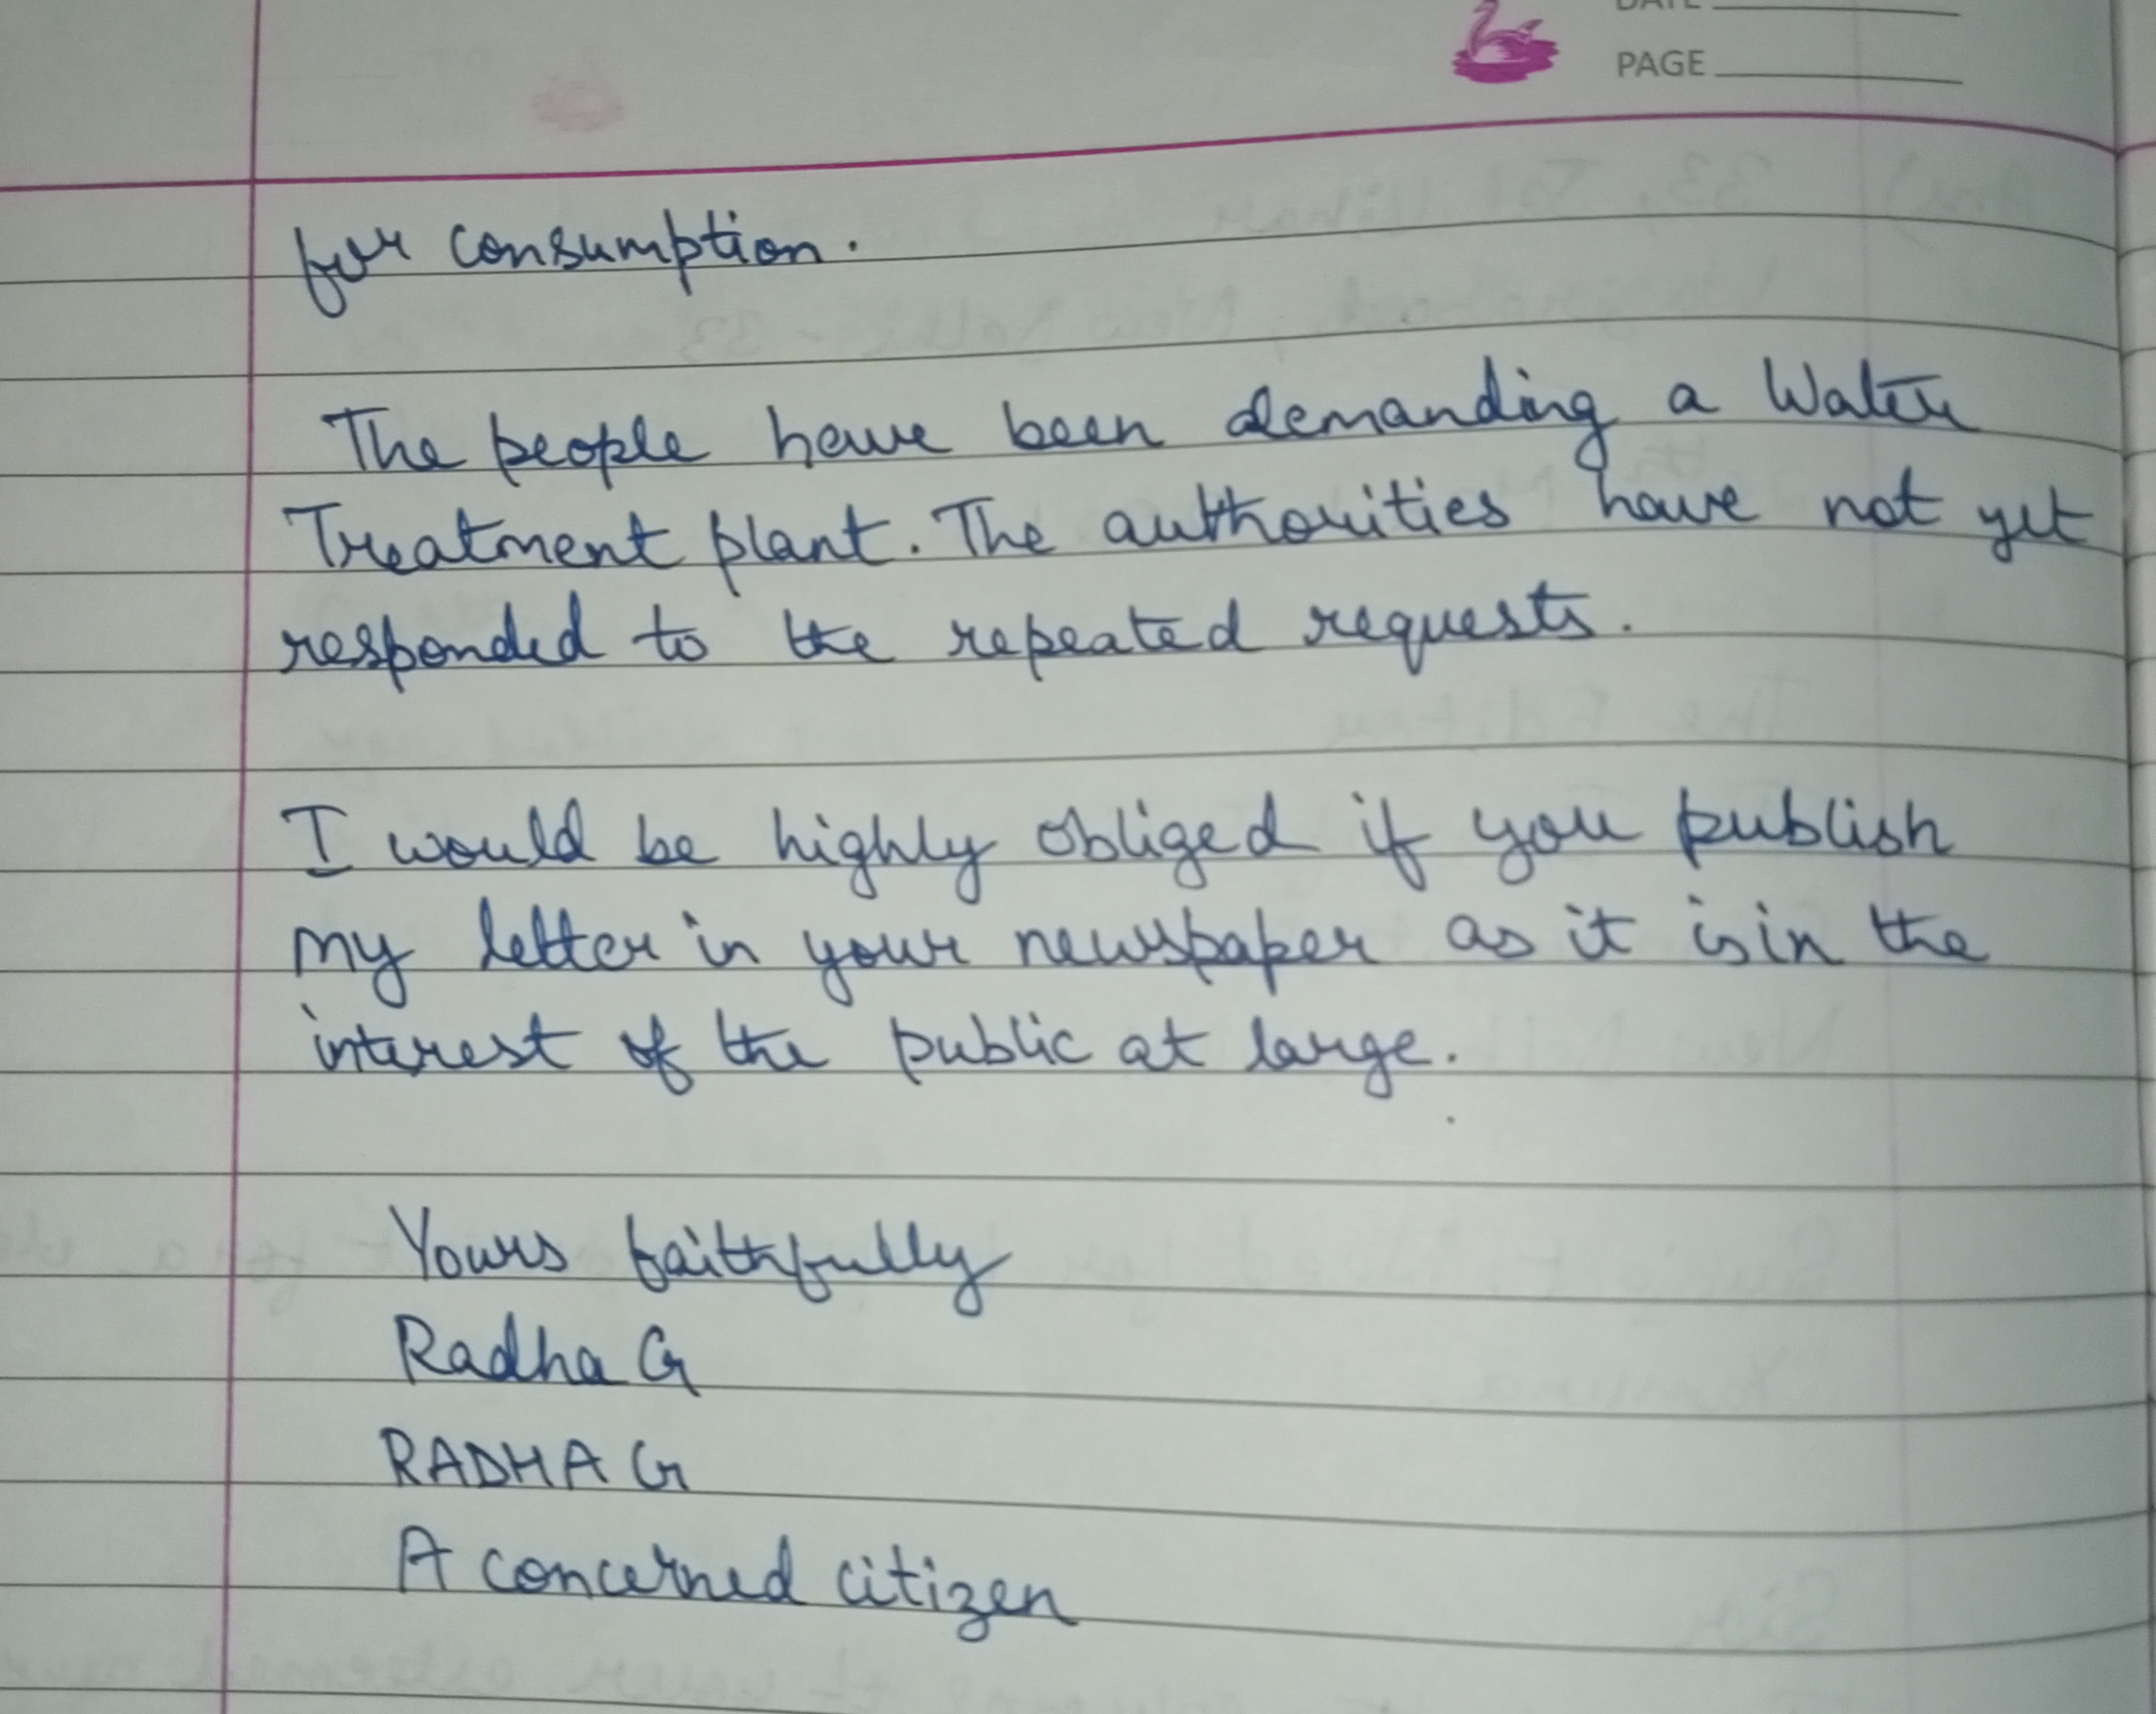 DATE
PAGE
for consumption.
The people have been demanding a Water
Treatment plant. The authorities have not yet
responded to the repeated requests.
I would be highly obliged if you publish
my letter in your newspaper as it is in the
interest of the public at large.
Yours faithfully
Radha G
RADHA G
A concerned citizen